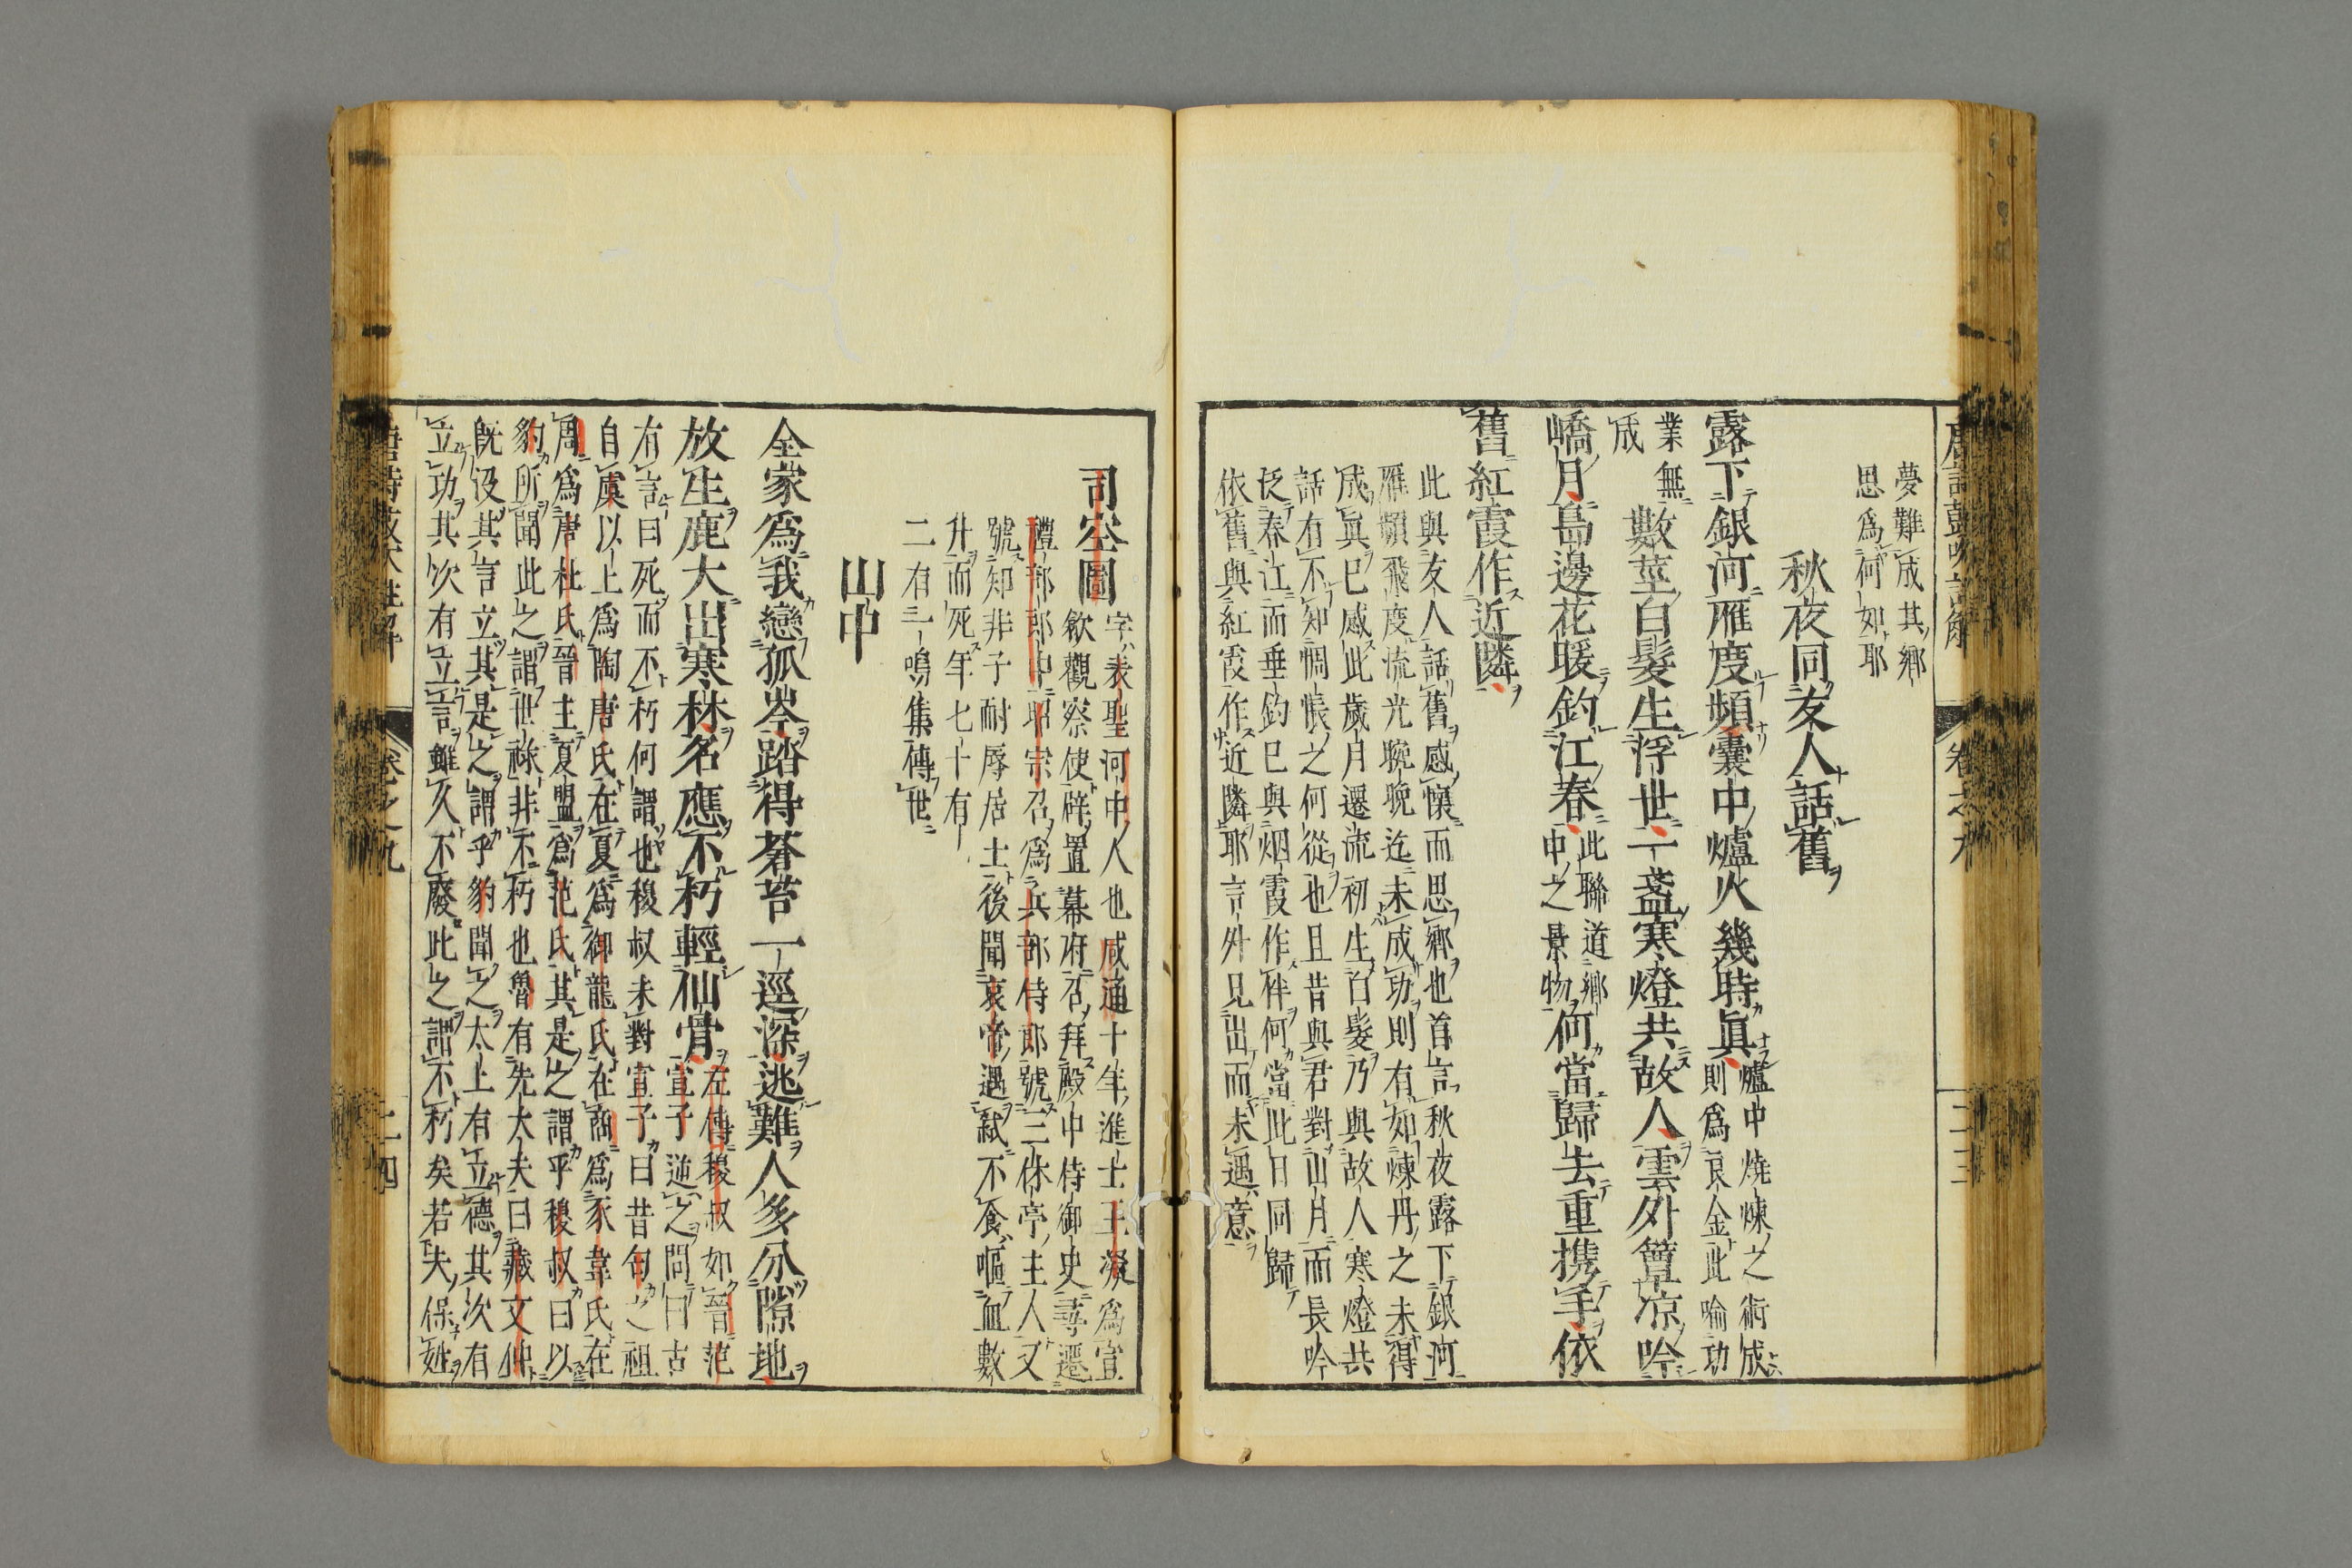 唐詩鼓吹註解
卷之九
二十三
夢難成其鄉
思爲何如耶
秋夜同友人話舊
露下銀河雁度頻囊中爐火幾時眞爐中燒煉之術成
則爲良金此喻功
業無
成
數莖白髮生浮世一盞寒燈共故人雲外簟凉吟
嶠月島邊花暖釣江春此聯道鄉
中之景物何當歸去重携手依
舊紅霞作近隣
此與友人話舊感懷而思鄉也首言秋夜露下銀河
雁頻飛度流光腕晚迄未成功則有如煉丹之未得
成眞巳感此歲月遷流初生白髮乃與故人寒燈共
話有不知惆悵之何從也且昔與君對山月而長吟
泛春江而垂釣巳與烟霞作伴何當此日同歸
依舊與紅霞作近隣耶言外見出而未遇意
司空圖字表聖河中人也咸通十年進士王凝爲宣
歙觀察使辟置幕府召拜殿中侍御史尋遷
禮部郎中昭宗召爲兵部侍郎號三休亭主人又
號知非子耐辱居士後聞哀帝遇弑不食嘔血數
升而死年七十有
二有一鳴集傳世
山中
全家爲我戀狐岑踏得蒼苔一逕深逃難人多分隙地
放生鹿大出寒林名應不朽輕仙骨左傳穆叔如晉范
宣子逆之問曰古
有言曰死而不朽何謂也穆叔未對宣子曰昔匄之祖
自虞以上爲陶唐氏在夏爲御龍氏在商爲豕韋氏在
周爲唐杜氏晉主夏盟爲范氏其是之謂乎穆叔曰以
豹所聞此之謂世祿非不朽也魯有先大夫曰臧文仲
既沒其言立其是之謂乎豹聞之太上有立德其次有
立功其次有立言雖久不廢此之謂不朽矣若夫保姓
唐詩鼓吹註解
卷之九
二十四